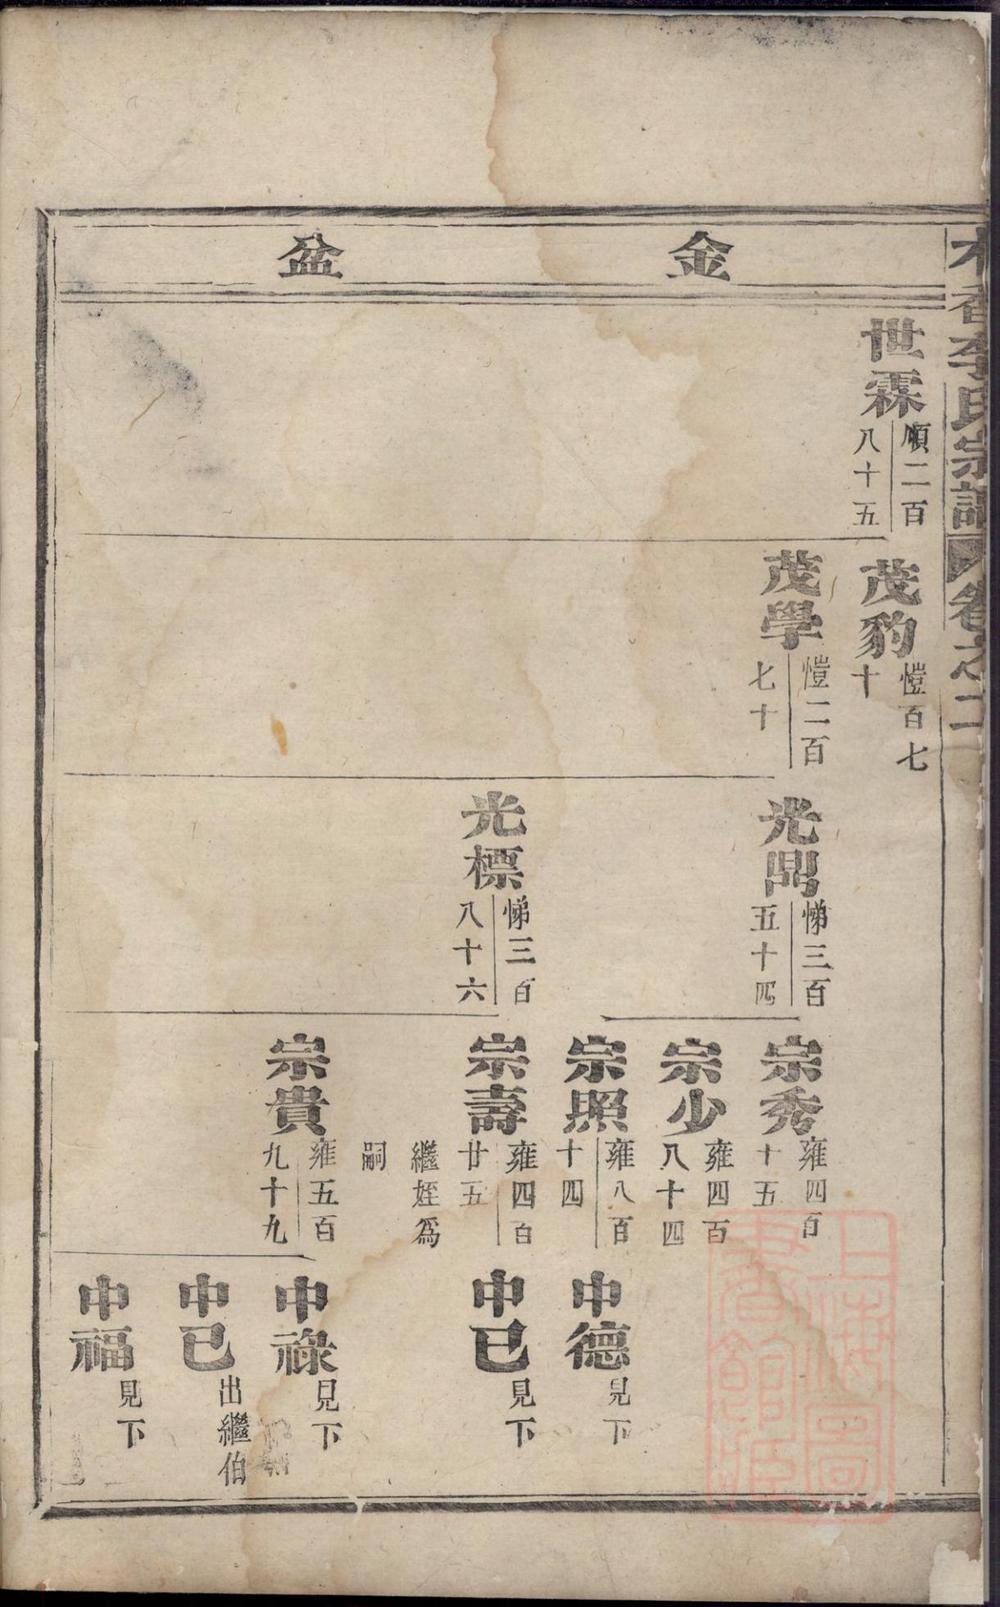 金盆
李氏宗譜
卷之二
世霖
順二百
八十五
茂豹
愷百七
十
茂學
愷二百
七十
光閗
悌三百
五十四
光標
悌三百
八十六
宗秀
雍四百
十五
宗少
雍四百
八十四
宗照
雍八百
十四
宗壽
雍四百
廿五
繼姪為
嗣
宗貴
雍五百
九十九
中德
見下
中已
見下
中祿
見下
中已
出繼伯
中福
見下
上海圖書館藏